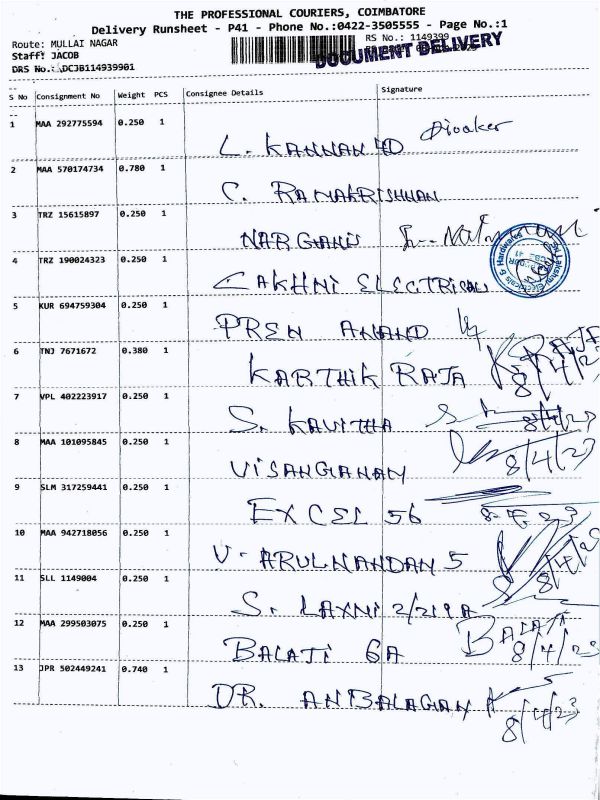 THE PROFESSIONAL COURIERS, COIMBATORE
Delivery Runsheet - P41 - Phone No.:0422-3505555 - Page No.:1
Route: MULLAI NAGAR
RS No.: 1149399
Staff: JACOB
DOCUMENT DELIVERY
DRS No.: DCJB114939901
S No Consignment No Weight PCS Consignee Details Signature
1 MAA 292775594 0.250 1
L. KANNAN HD
2 MAA 570174734 0.780 1
C. RAMAKRISHNAN
3 TRZ 15615897 0.250 1
NARGHANIS
4 TRZ 190024323 0.250 1
LAKHNI ELECTRICAL
5 KUR 694759304 0.250 1
PREM ANAND
6 TNJ 7671672 0.380 1
KARTHIK RAJA K. RAJA
8/4/23
7 VPL 402223917 0.250 1
S. KAVITHA 8/4/23
8 MAA 101095845 0.250 1
VISANGANAM 8/4/23
9 SLM 317259441 0.250 1
EXCEL 56
10 MAA 942718056 0.250 1
V. ARULNANDAN 5
11 SLL 1149004 0.250 1
S. LAXMI 2/219A
12 MAA 299503075 0.250 1
BALAJI 6A BALAJI
8/4/23
13 JPR 502449241 0.740 1
DR. ANBALAGAN
8/4/23